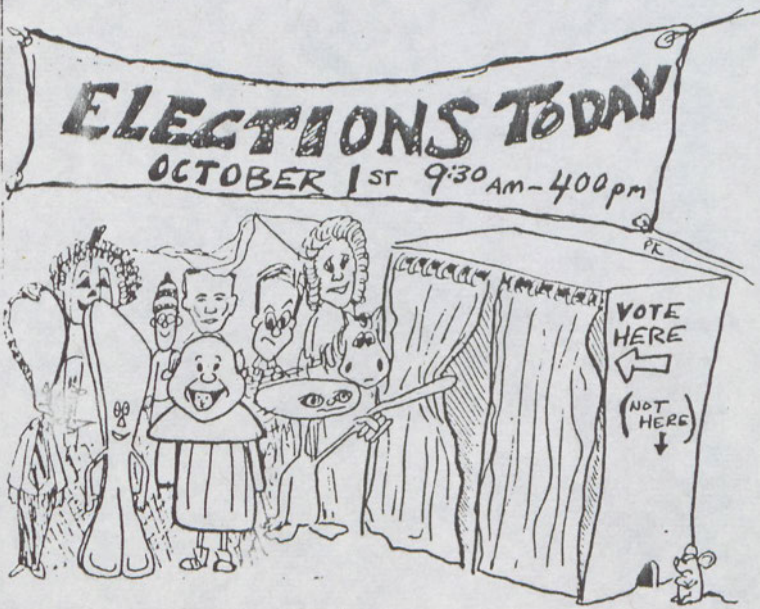 ELECTIONS TODAY
OCTOBER 1ST 9:30 AM - 400 pm
PK
VOTE
HERE
(NOT
HERE)